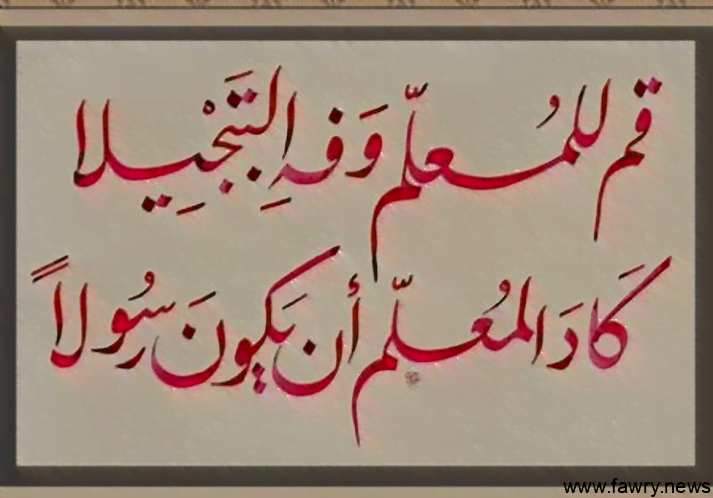 قم للمُعلّم وَفهِ التَبْجِيلا
كَادَ المُعُلّم أن يَكونَ رسُولاً
www.fawry.news